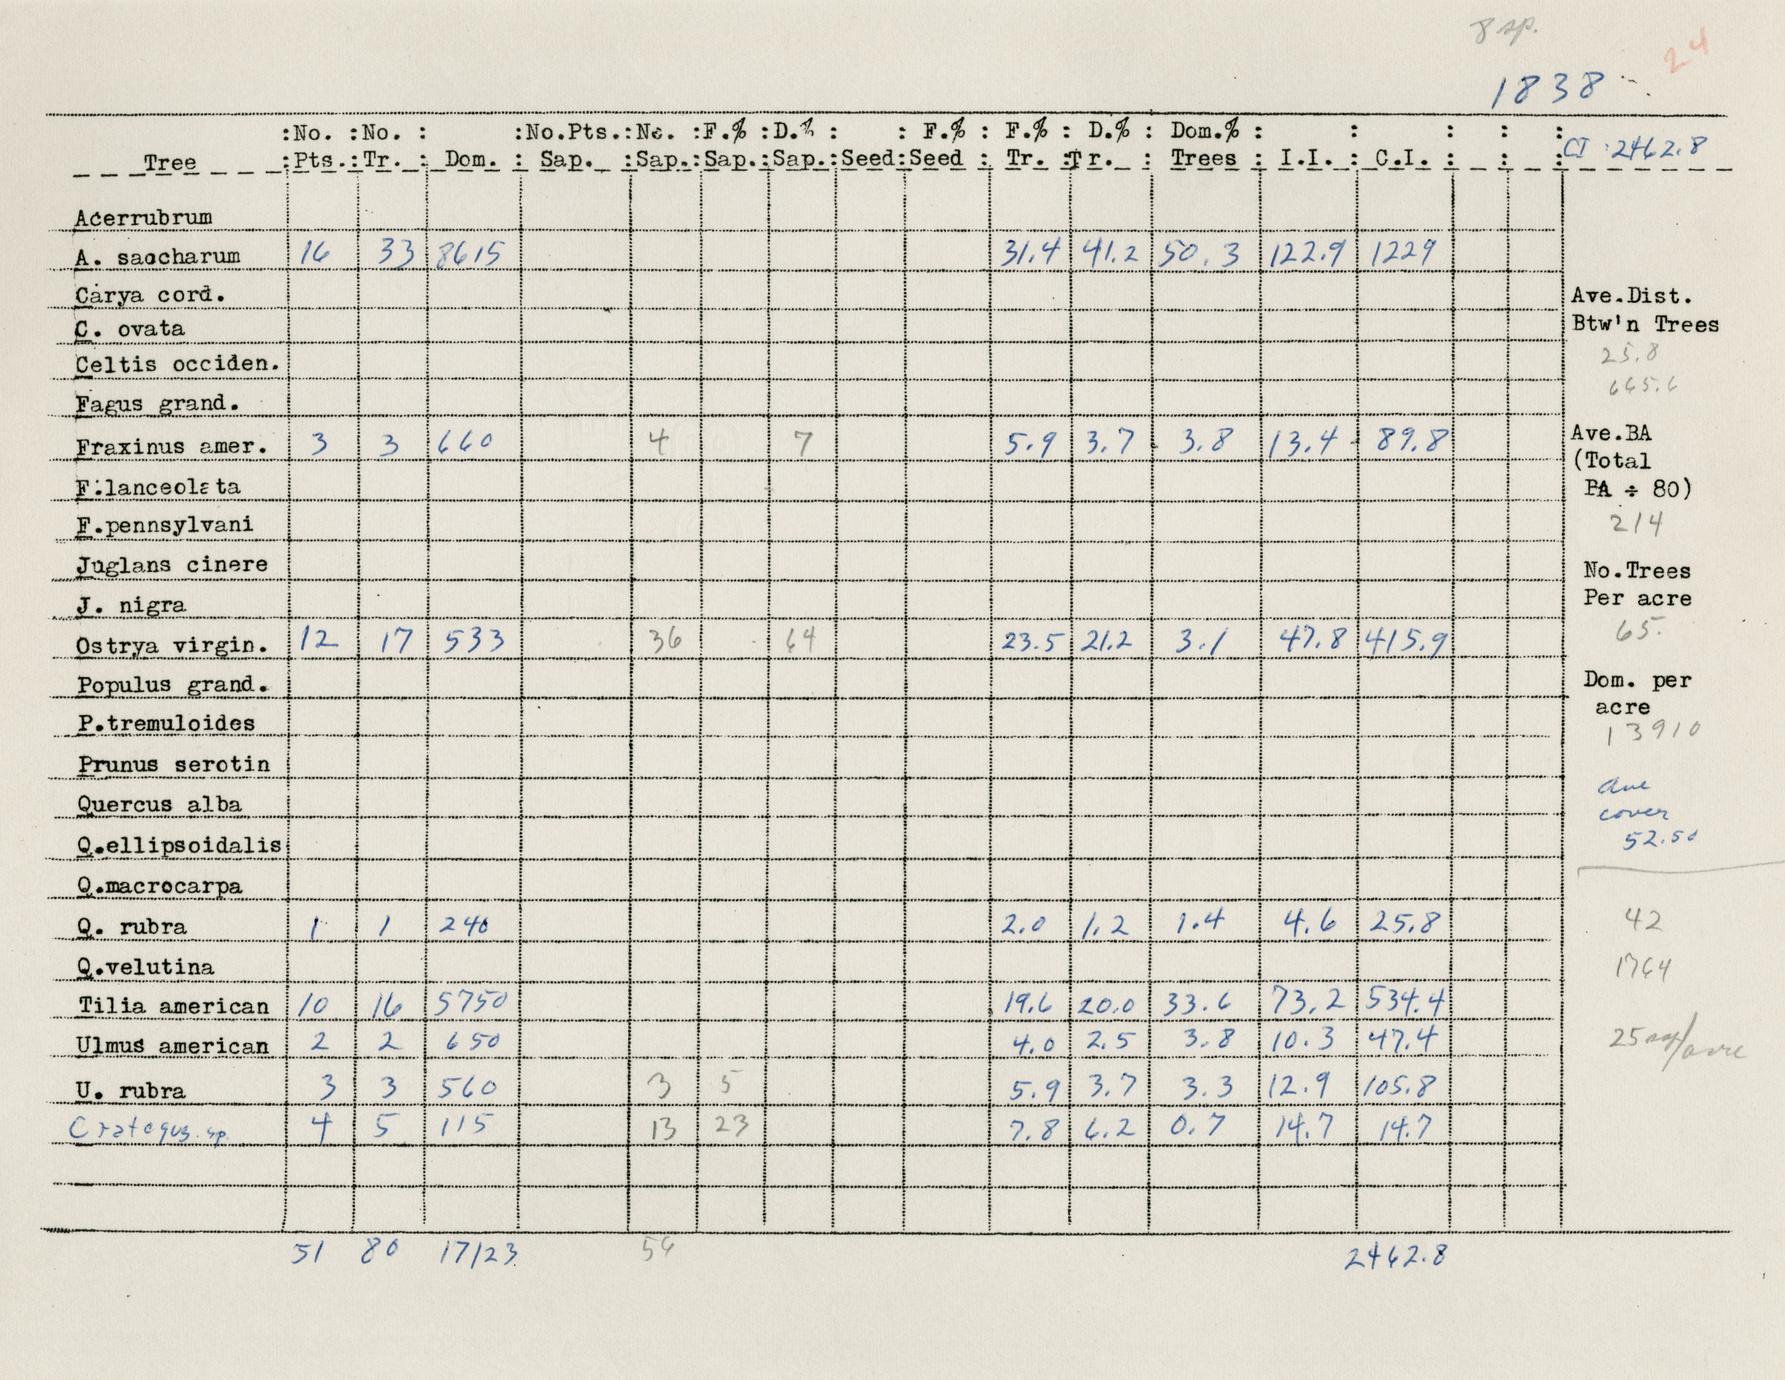 8 sp.
24
1838
:No. :No. : :No.Pts.:No. :F.% :D.% : : F.% : F.% : D.% : Dom.% : : : : :
Tree :Pts.:Tr. : Dom. : Sap. :Sap.:Sap.:Sap.:Seed:Seed : Tr. :Tr. : Trees : I.I. : C.I. : : : CI :2462.8
Acerrubrum
A. saccharum 16 33 8615 31.4 41.2 50.3 122.9 1229
Carya cord.
C. ovata
Celtis occiden.
Fagus grand.
Fraxinus amer. 3 3 660 4 7 5.9 3.7 3.8 13.4 89.8
F.lanceolata
F.pennsylvani
Juglans cinere
J. nigra
Ostrya virgin. 12 17 533 36 64 23.5 21.2 3.1 47.8 415.9
Populus grand.
P.tremuloides
Prunus serotin
Quercus alba
Q.ellipsoidalis
Q.macrocarpa
Q. rubra 1 1 240 2.0 1.2 1.4 4.6 25.8
Q.velutina
Tilia american 10 16 5750 19.6 20.0 33.6 73.2 534.4
Ulmus american 2 2 650 4.0 2.5 3.8 10.3 47.4
U. rubra 3 3 560 3 5 5.9 3.7 3.3 12.9 105.8
Crategus sp. 4 5 115 13 23 7.8 6.2 0.7 14.7 14.7
51 80 17123 56 2462.8
Ave.Dist.
Btw'n Trees
25.8
665.6
Ave.BA
(Total
BA ÷ 80)
214
No.Trees
Per acre
65.
Dom. per
acre
13910
ave
cover
52.50
42
1764
25 /acre